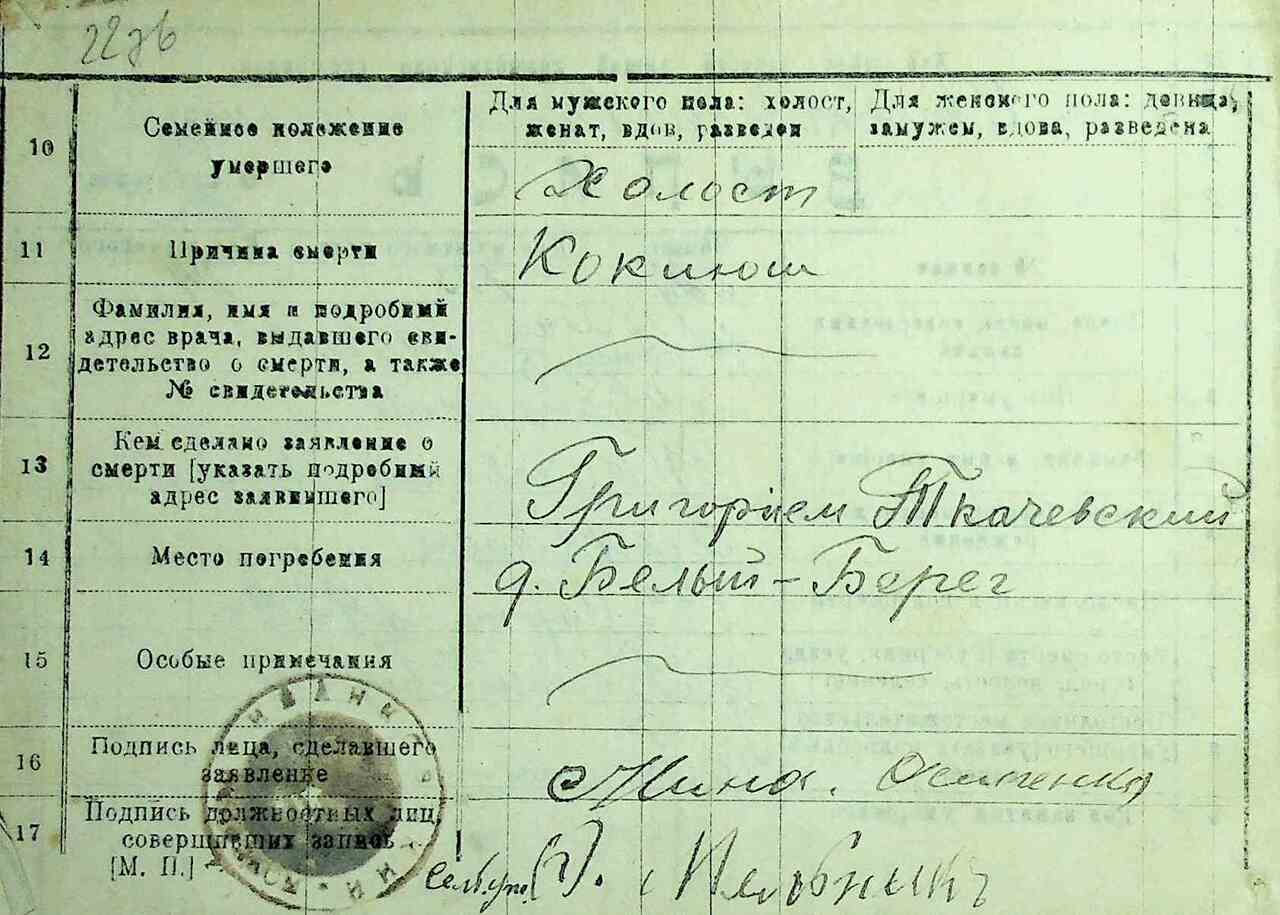 10
Семейное положение
умершего
Для мужского пола: холост,
женат, вдов, разведен
Для женского пола: девица,
замужем, вдова, разведена
Холост
11
Причина смерти
Коклюш
12
Фамилия, имя и подробный
адрес врача, выдавшего сви-
детельство о смерти, а также
№ свидетельства
13
Кем сделано заявление о
смерти [указать подробный
адрес заявившего]
Григорием Ткачевский
14
Место погребения
д. Белый-Берег
15
Особые примечания
16
Подпись лица, сделавшего
заявление
Мина
17
Подпись должностных лиц,
совершивших запись
[М. П.]
Мельникъ